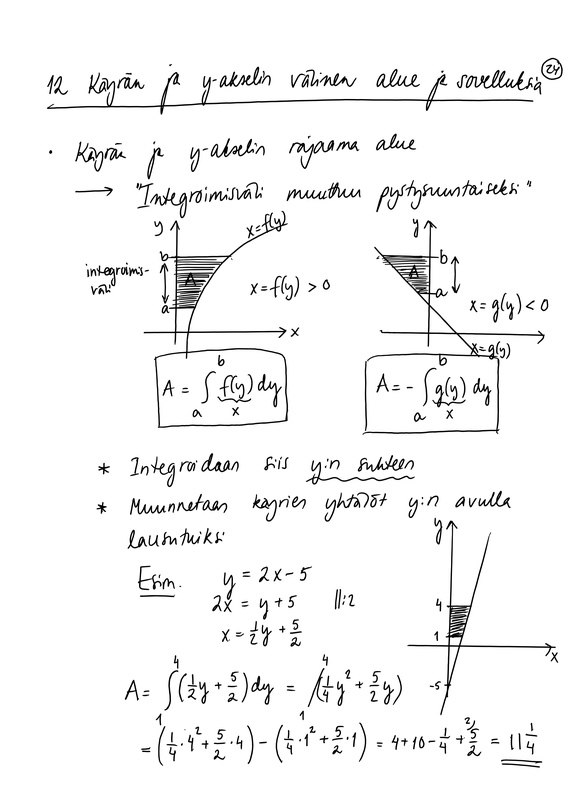 24
12 Käyrän ja y-akselin välinen alue ja sovelluksia
• Käyrän ja y-akselin rajaama alue
→ "Integroimisväli muuttuu pystysuuntaiseksi"
y x=f(y)
b
integroimis-
väli
A
a
x=f(y) > 0
x
y
b
A
a
x=g(y) < 0
x=g(y)
A = ∫ₐᵇ f(y) dy
x
A = - ∫ₐᵇ g(y) dy
x
* Integroidaan siis y:n suhteen
* Muunnetaan käyrien yhtälöt y:n avulla
lausutuiksi
Esim. y = 2x - 5
2x = y + 5 ||:2
x = 1/2 y + 5/2
y
4
1
x
-5
A = ∫₁⁴ (1/2 y + 5/2) dy = /₁⁴ (1/4 y² + 5/2 y)
= (1/4 · 4² + 5/2 · 4) - (1/4 · 1² + 5/2 · 1) = 4 + 10 - 1/4 + ²⁾5/2 = 11 1/4